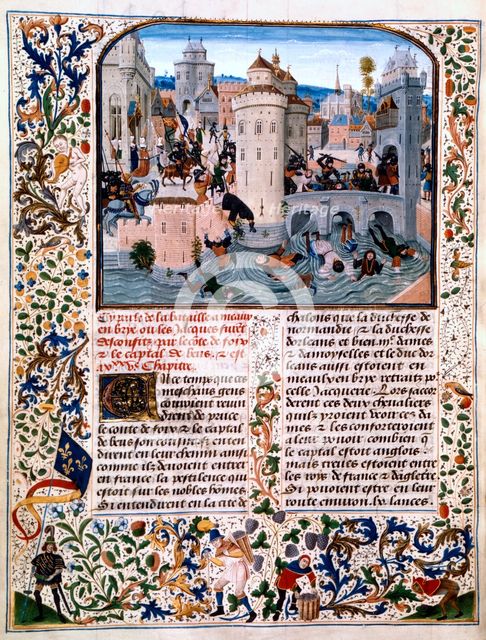 Cy parle de la bataille a meaulx
en brye ou les Jacques furet
desconfits par le cote de foix
& le captal de beus, & est
Chapitre.
En ce temps que ces
meschans gens
couroient reuin
drent de pruce
le conte de foix & le captal
de beus son cousin, si enten
dirent en leur chemin, ainsi
comme ilz deuoient entrer
en france, la pestilence qui
estoit sur les nobles homes,
Si entendirent en la cite
chalons que la duchesse de
normandie & la duchesse
dorleans et bien dames
& damoyselles et le duc dor
leans aussi estoient en
meaulx en brye retraitz po
celle Jacquerie. Lors saccor
derent ces deux cheualiers
quilz yroient veoir ces da
mes & les conforteroient
a leur pouoir combien q
le captal estoit anglois,
mais treues estoient entre
les rois de france & dagletre
Si pouoient estre en leur
route enuiron lx lances,
Heritage
Heritage